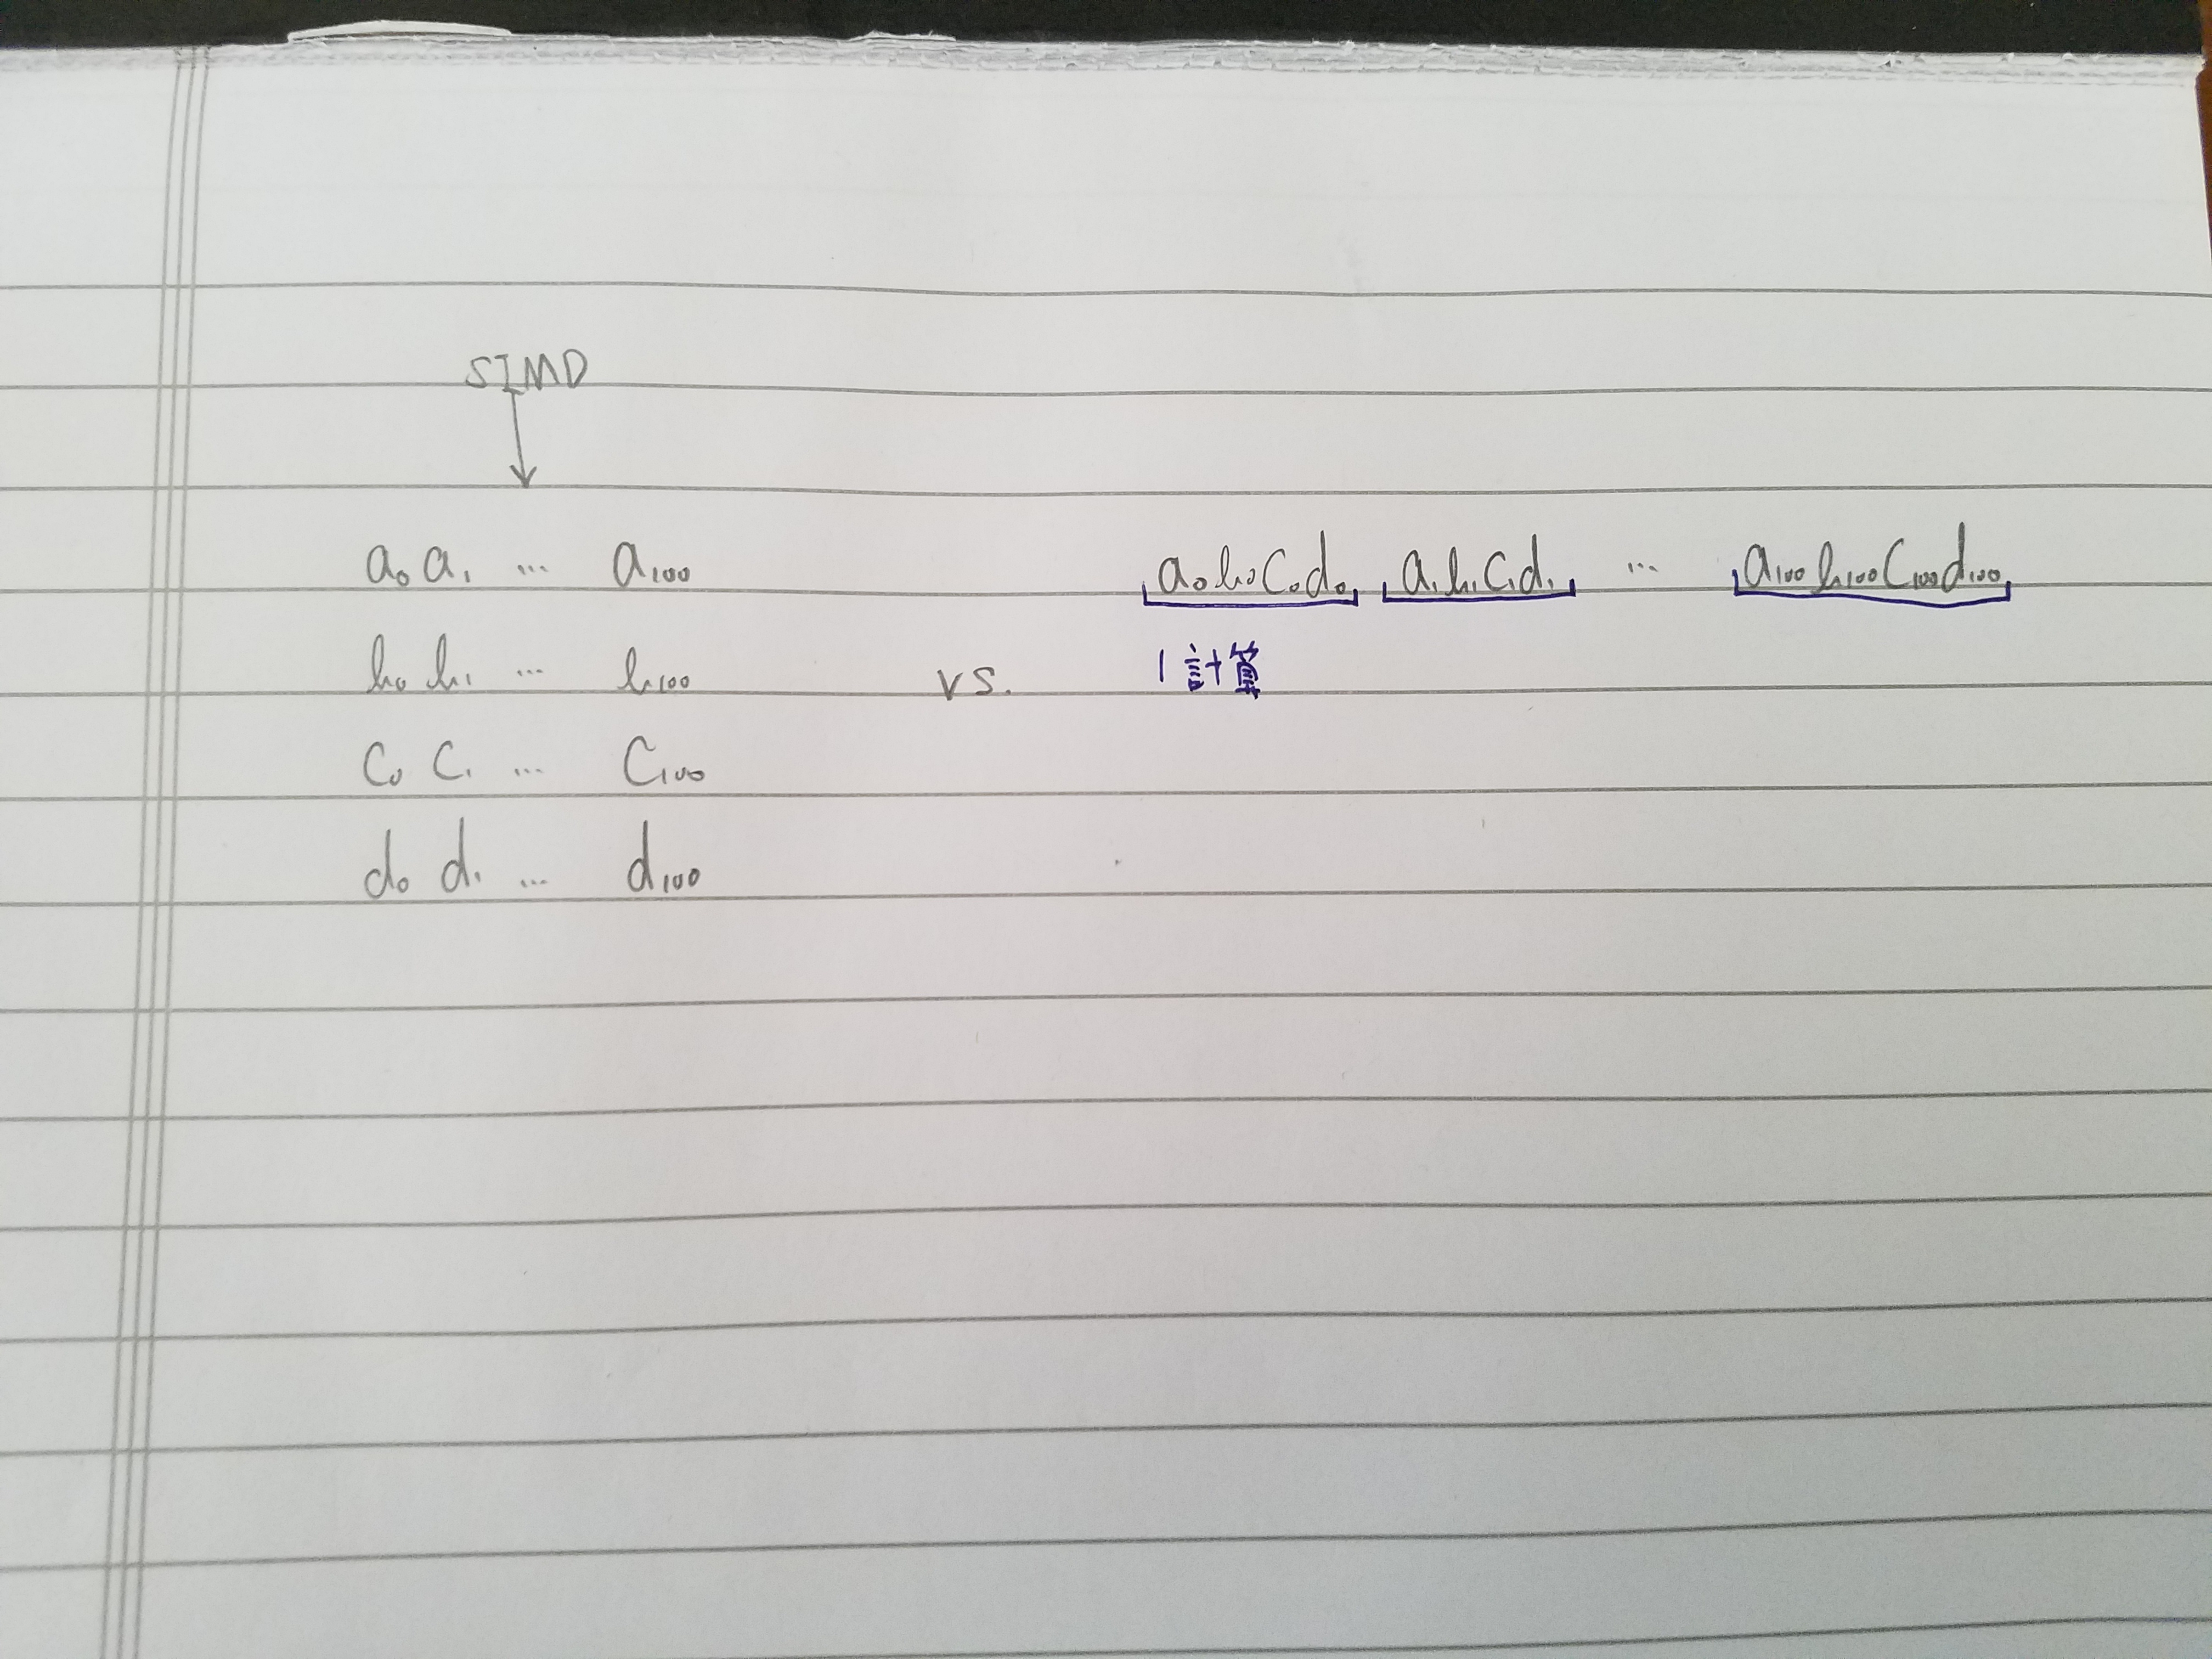 SIMD
a₀ a₁ ... a₁₀₀
b₀ b₁ ... b₁₀₀
c₀ c₁ ... c₁₀₀
d₀ d₁ ... d₁₀₀
vs.
a₀b₀c₀d₀ a₁b₁c₁d₁ ... a₁₀₀b₁₀₀c₁₀₀d₁₀₀
1計算